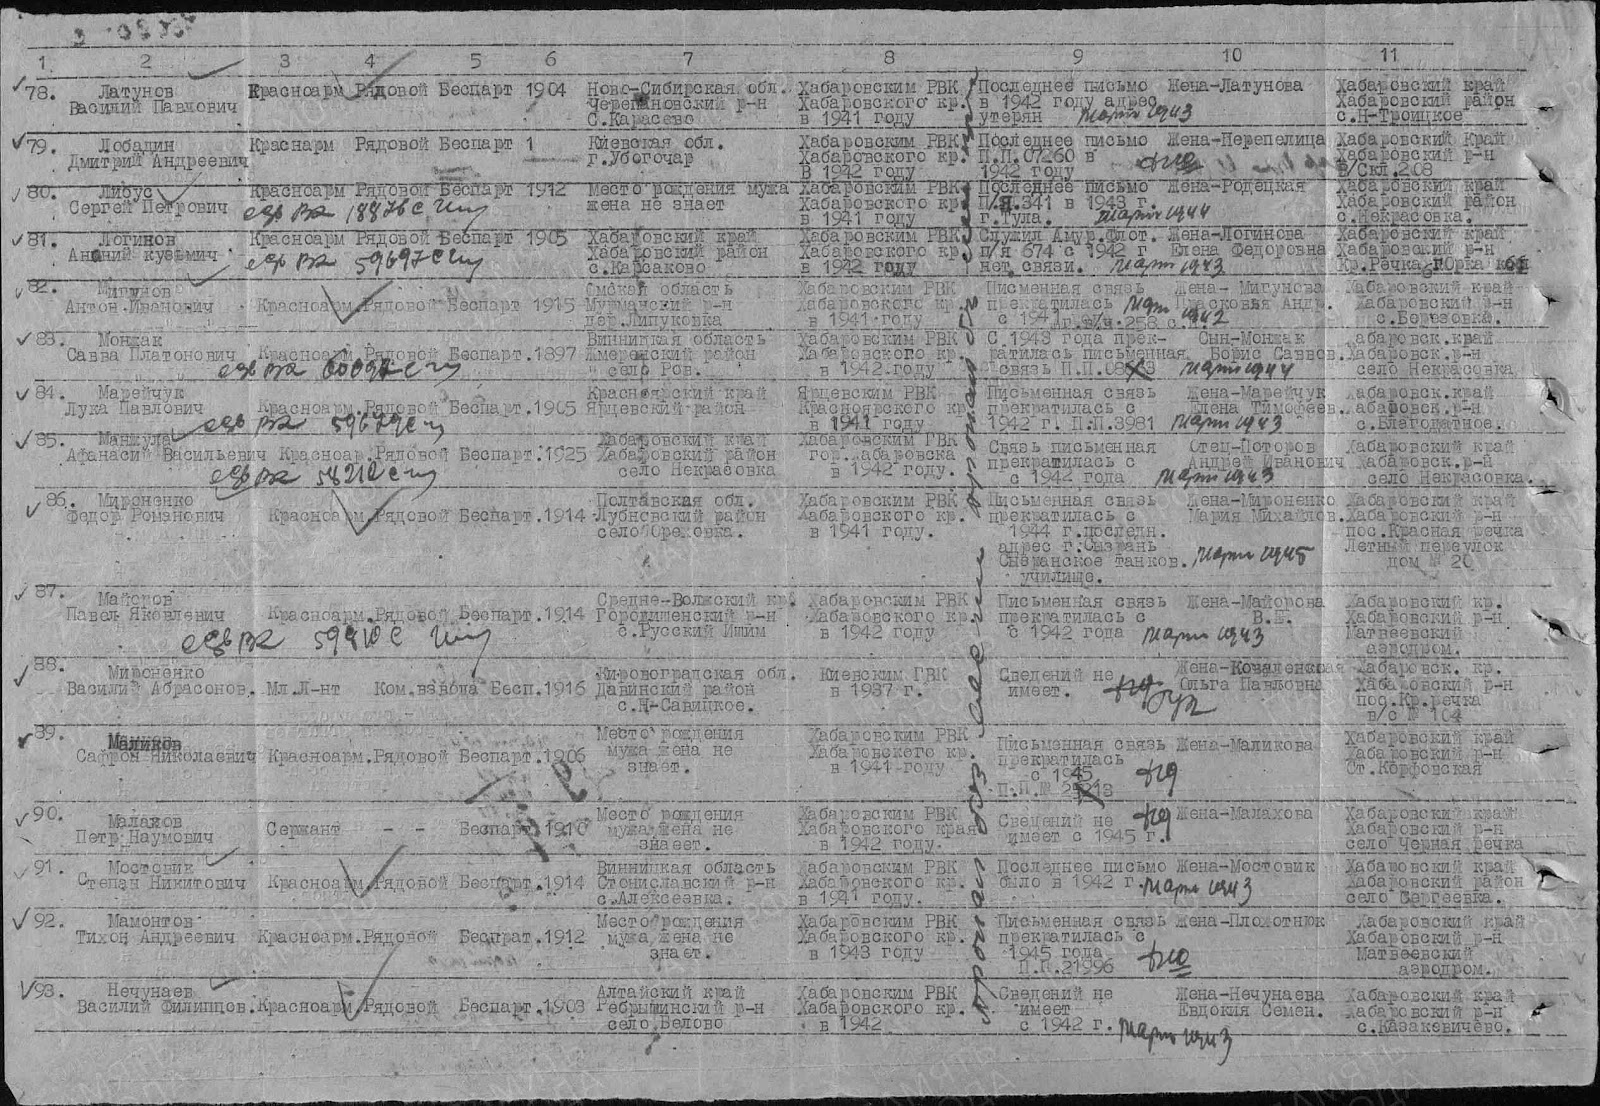 1. 2 3 4 5 6 7 8 9 10 11
78. Латунов Красноарм Рядовой Беспарт 1904 Ново-Сибирская обл. Хабаровским РВК Последнее письмо Жена-Латунова Хабаровский край
Василий Павлович Черепановский р-н Хабаровского кр. в 1942 году адрес Хабаровский район
С.Карасево в 1941 году утерян март 1943 с.Н-Троицкое
79. Лобадин Краснарм Рядовой Беспарт 1 Киевская обл. Хабаровским РВК Последнее письмо Жена-Перепелица Хабаровский Край
Дмитрий Андреевич г.Убогочар Хабаровского кр. П.П.07260 в Хабаровский р-н
В 1942 году 1942 году в/Скл.208
80. Либус Красноарм Рядовой Беспарт 1912 Место рождения мужа Хабаровским РВК Последнее письмо Жена-Родецкая Хабаровский край
Сергей Петрович жена не знает Хабаровского кр. П/Я.341 в 1943 г. Хабаровский район
в 1941 году г.Тула. март 1944 с.Некрасовка.
81. Логинов Красноарм Рядовой Беспарт 1905 Хабаровский край Хабаровским РВК Служил Амур.Флот. Жена-Логинова Хабаровский край
Хабаровский район Хабаровского кр. п/я 674 с 1942 г Елена Федоровна Хабаровский р-н
с.Карсаково в 1942 году нет связи. март 1943 Кр.Речка
82. Мигунов Омская область Хабаровским РВК Писменная связь Жена- Мигунова Хабаровский край
Антон Иванович Красноарм.Рядовой Беспарт 1915 Мурманский р-н Хабаровского кр. прекратилась Прасковья Андр. Хабаровский р-н
дер.Липуковка в 1941 году март 1942 с.Березовка.
83. Монжак Винницкая область Хабаровским РВК С 1943 года прек- Сын-Монжак Хабаровск.край
Савва Платонович Красноарм.Рядовой Беспарт.1897 Жмеренский район Хабаровского кр. ратилась письменная Борис Саввов. Хабаровск.р-н
село Ров. в 1942.году связь П.П. март 1944 село Некрасовка
84. Марейчук Красноярский край Ярцевским РВК Письменная связь Жена-Марейчук Хабаровск.край
Лука Павлович Красноарм.Рядовой Беспарт.1905 Ярцевский район Красноярского кр. прекратилась с Елена Тимофеев. Хабаровск.р-н
в 1941 году 1942 г. П.П.3981 март 1943 с.Благодатное.
85. Манжула Хабаровский край Хабаровским РВК Связь письменная Отец-Поторов Хабаровский край
Афанасий Васильевич Красноар.Рядовой Беспарт.1925 Хабаровский район гор.Хабаровска прекратилась с Андрей Иванович Хабаровск.р-н
село Некрасовка в 1942 году. с 1942 года март 1943 село Некрасовка.
86. Мироненко Полтавская обл. Хабаровским РВК Письменная связь Жена-Мироненко Хабаровский край
Федор Романович Красноарм.Рядовой Беспарт.1914 Лубновский район Хабаровского кр. прекратилась с Мария Михайлов. Хабаровский р-н
село Ореховка. в 1941 году. 1944 г.последн. пос.Красная речка
адрес г.Сызрань Летный переулок
Сызранское танков. март 1945 дом № 20
училище.
87. Майоров Средне-Волжский кр. Хабаровским РВК Письменная связь Жена-Майорова Хабаровский кр.
Павел Яковлевич Красноарм.Рядовой Беспарт.1914 Городищенский р-н Хабаровского кр. прекратилась с Хабаровский р-н.
с.Русский Ишим в 1942 году с 1942 года март 1943 Матвеевский
аэродром.
88. Мироненко Кировоградская обл. Киевским ГВК Сведений не Жена-Коваленская Хабаровск. кр.
Василий Абрасонов. Мл.Л-нт Ком.взвода Бесп.1916 Давинский район в 1937 г. имеет. Ольга Павловна Хабаровский р-н
с.Н-Савицкое. пос.Кр.речка
в/с № 104
89. Маликов Место рождения Хабаровским РВК Письменная связь Жена-Маликова Хабаровский край
Сафрон Николаевич Красноарм.Рядовой Беспарт.1906 мужа жена не Хабаровского кр. прекратилась Хабаровский р-н
знает. в 1941 году с 1945 Ст.Корфовская
П.П.№
90. Малахов Место рождения Хабаровским РВК Сведений не Жена-Малахова Хабаровский край
Петр Наумович Сержант - - Беспарт.1910 мужа жена не Хабаровского края имеет с 1945 г. Хабаровский р-н
знаеет. в 1942 году. село Черная речка
91. Мостовик Винницкая область Хабаровским РВК Последнее письмо Жена-Мостовик Хабаровский край
Степан Никитович Красноарм.Рядовой Беспарт.1914 Стониславский р-н Хабаровского кр. было в 1942 г. март 1943 Хабаровский район
с.Алексеевка. в 1941 году. село Сергеевка.
92. Мамонтов Место рождения Хабаровским РВК Письменная связь Жена-Плохотнюк Хабаровский край
Тихон Андреевич Красноарм.Рядовой Беспрат.1912 мужа жена не Хабаровского кр. прекратилась с Хабаровский р-н
знает. в 1943 году 1945 года Матвеевский
П.П.21996 аэродром.
93. Нечунаев Алтайский край Хабаровским РВК Сведений не Жена-Нечунаева Хабаровский край
Василий Филиппов. Красноарм.Рядовой Беспарт.1903 Ребрыинский р-н Хабаровского кр. имеет Евдокия Семен. Хабаровский р-н
село Белово в 1942 с 1942 г. март 1943 с.Казакевичево.